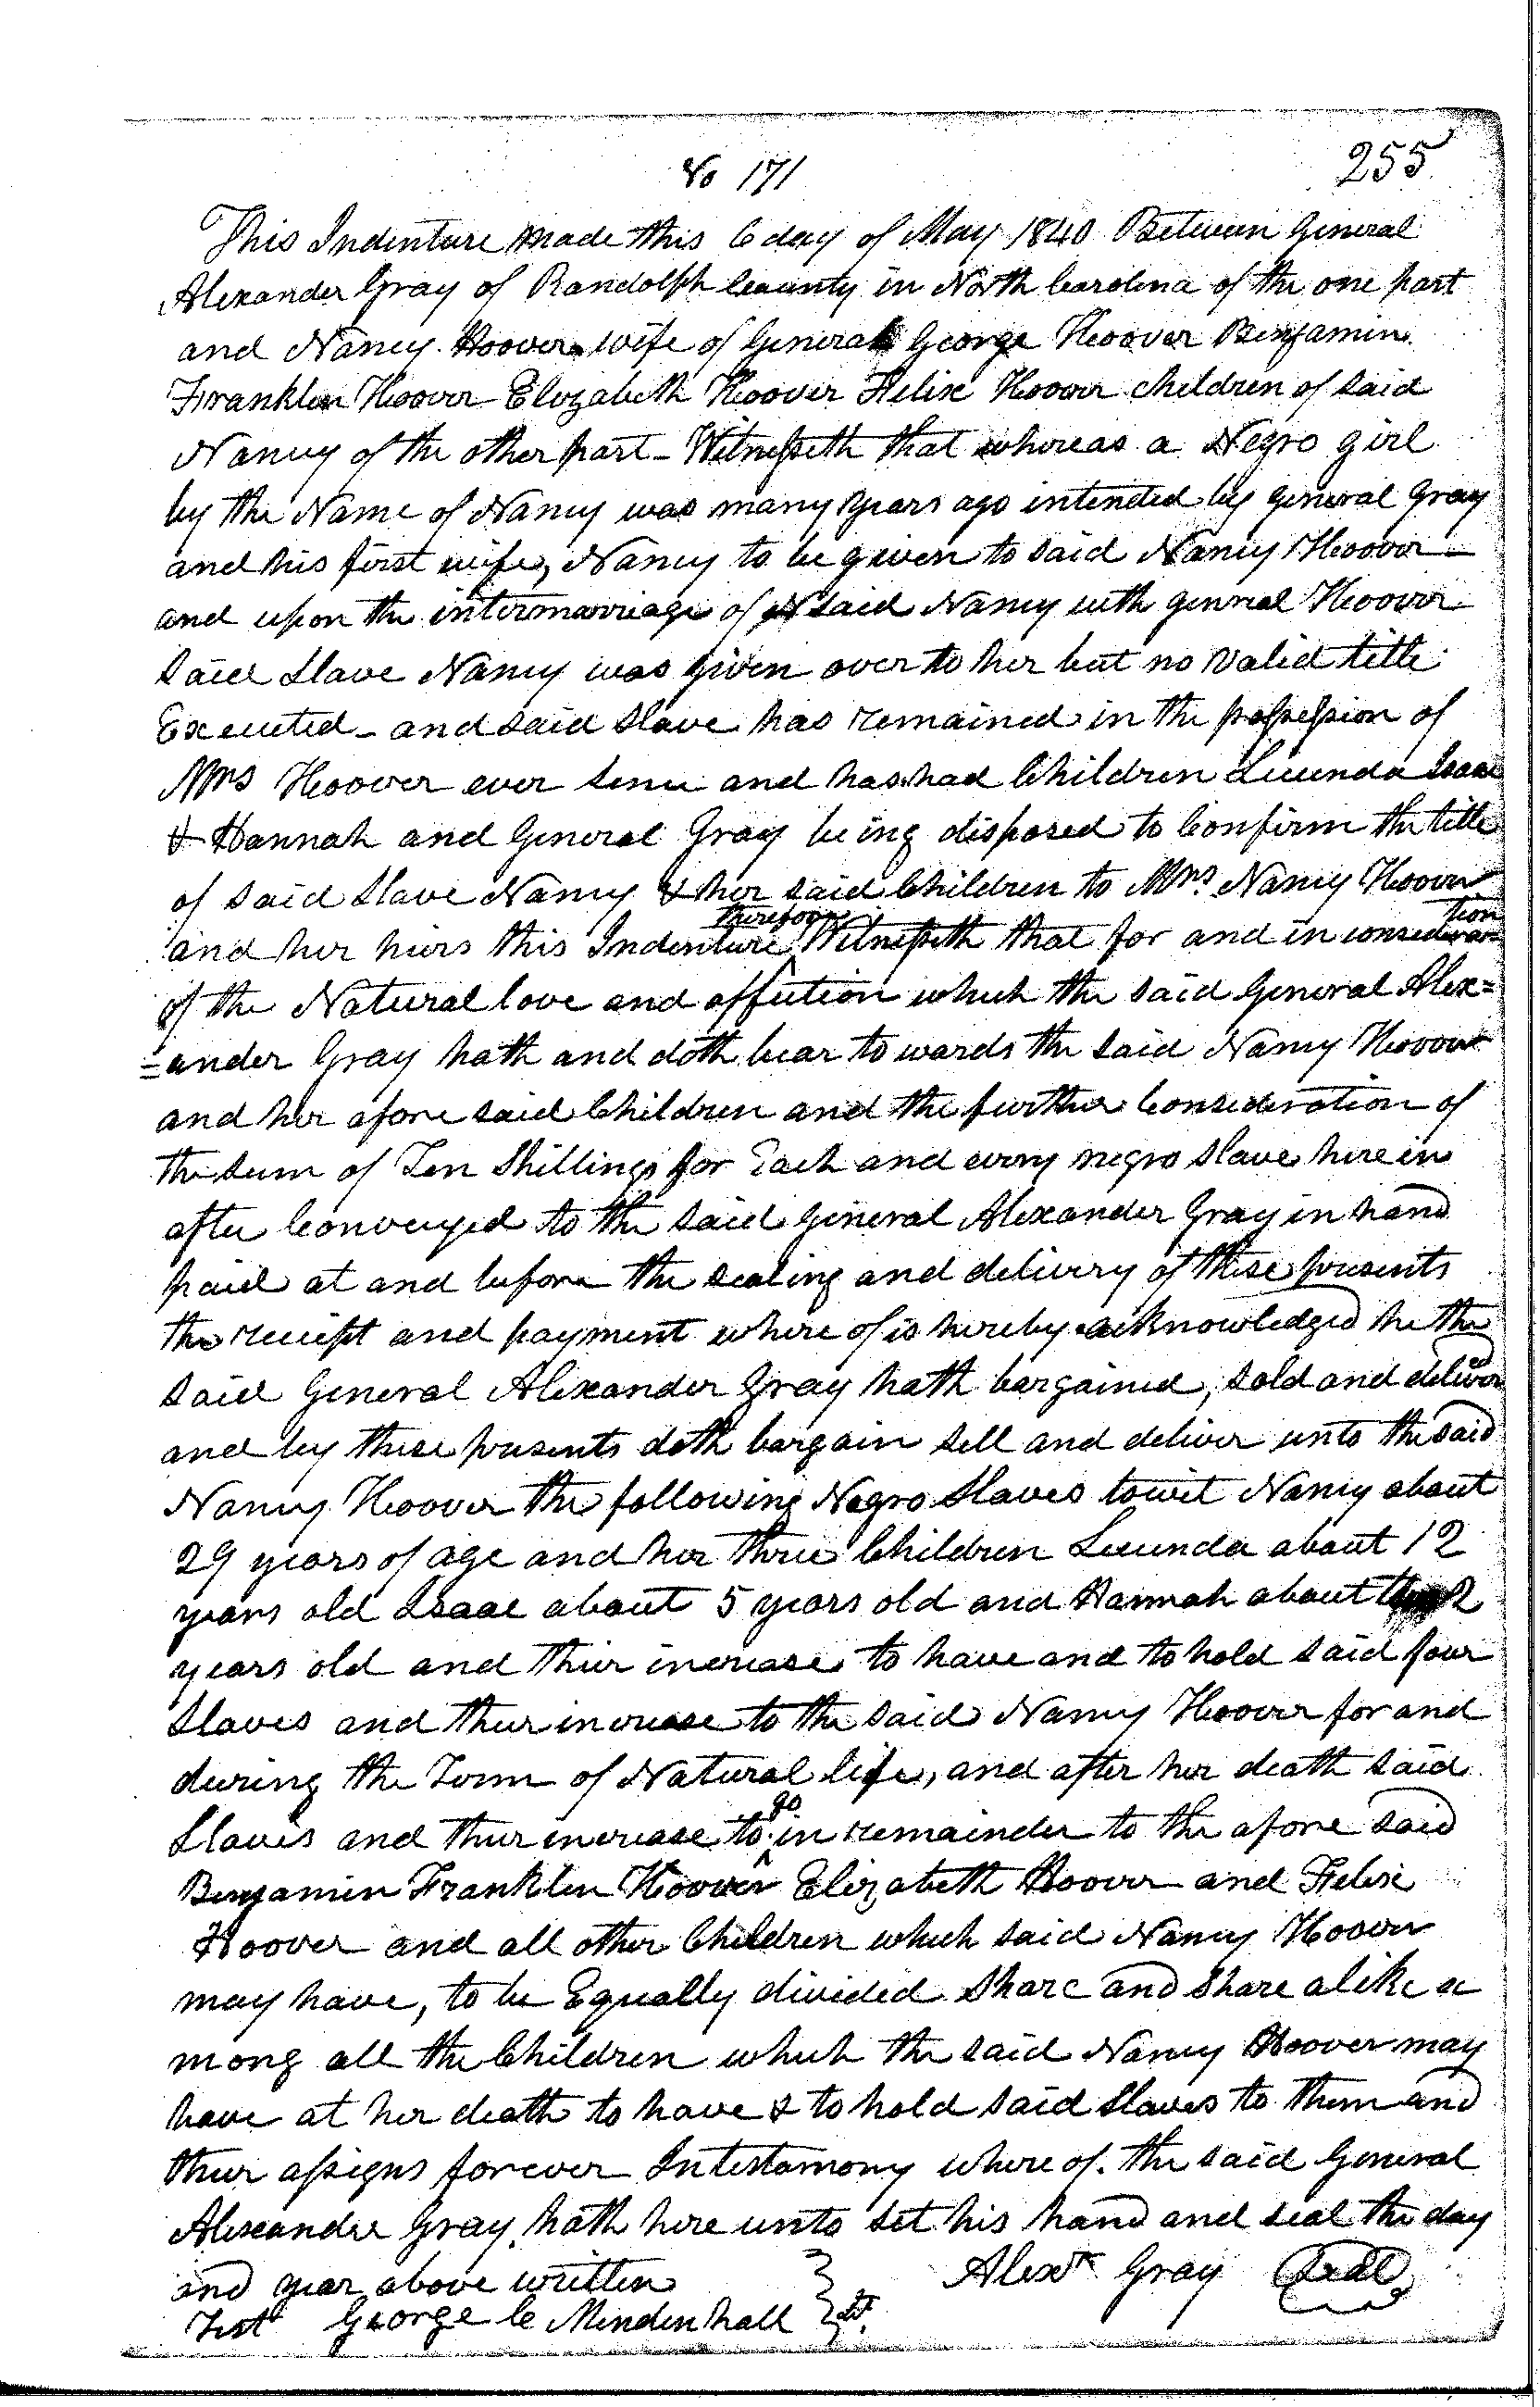 No 171
255
This Indenture made this 6 day of May 1840 Between General
Alexander Gray of Randolph County in North Carolina of the one part
and Nancy Hoover wife of General George Hoover Benjamin
Franklin Hoover Elizabeth Hoover Felix Hoover children of said
Nancy of the other part - Witnesseth that whereas a Negro girl
by the Name of Nancy was many years ago intended by General Gray
and his first wife, Nancy to be given to said Nancy Hoover -
and upon the intermarriage of said Nancy with general Hoover
said Slave Nancy was given over to her but no valid title
Executed - and said slave has remained in the possession of
Mrs Hoover ever since and has had Children Lucinda Isaac
& Hannah and General Gray being disposed to Confirm the title
of said Slave Nancy & her said Children to Mrs Nancy Hoover
and her heirs this Indenture therefore Witnesseth that for and in consideration
of the Natural love and affection which the said General Alex=
=ander Gray hath and doth bear to wards the said Nancy Hoover
and her afore said Children and the further Consideration of
the Sum of Ten Shillings for Each and every negro slave here in
after Conveyed to the said General Alexander Gray in hand
paid at and before the sealing and delivery of these presents
the receipt and payment where of is hereby acknowledged he the
said General Alexander Gray hath bargained, sold and delivered
and by these presents doth bargain sell and deliver unto the said
Nancy Hoover the following Negro Slaves towit Nancy about
29 years of age and her three Children Lucinda about 12
years old Isaac about 5 years old and Hannah about 2
years old and their increase to have and to hold said four
Slaves and their increase to the said Nancy Hoover for and
during the Term of Natural life, and after her death said
Slaves and their increase to go in remainder to the afore said
Benjamin Franklin Hoover Elizabeth Hoover and Felix
Hoover and all other Children which said Nancy Hoover
may have, to be Equally divided Share and Share alike a
mong all the Children which the said Nancy Hoover may
have at her death to have & to hold said Slaves to them and
their assigns forever Intestamony where of. the said General
Alexander Gray, hath here unto set his hand and seal the day
and year above written
Alexr Gray Seal
Test George C Mendenhall